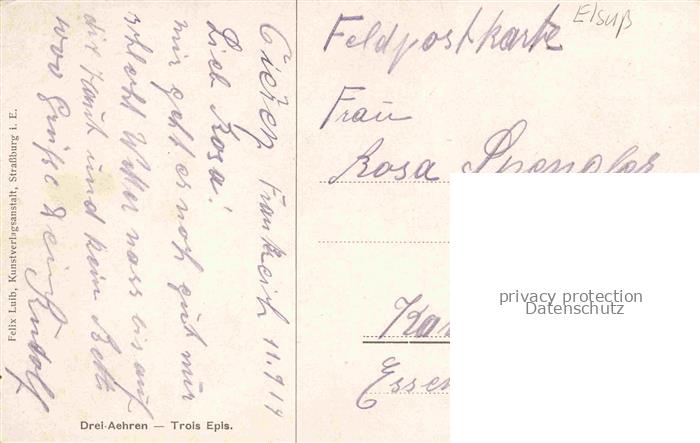 Frankreich 11.9.14
Lieb Rosa!
mir geht es noch gut nur
schlecht Wetter nass bis auf
die Haut und kein Bett
1000 Grüße Dein Rudolf
Felix Luib, Kunstverlagsanstalt, Straßburg i. E.
Drei-Aehren — Trois Epis.
Elsaß
Feldpostkarte
Frau
Rosa Spengler
Essen
privacy protection
Datenschutz